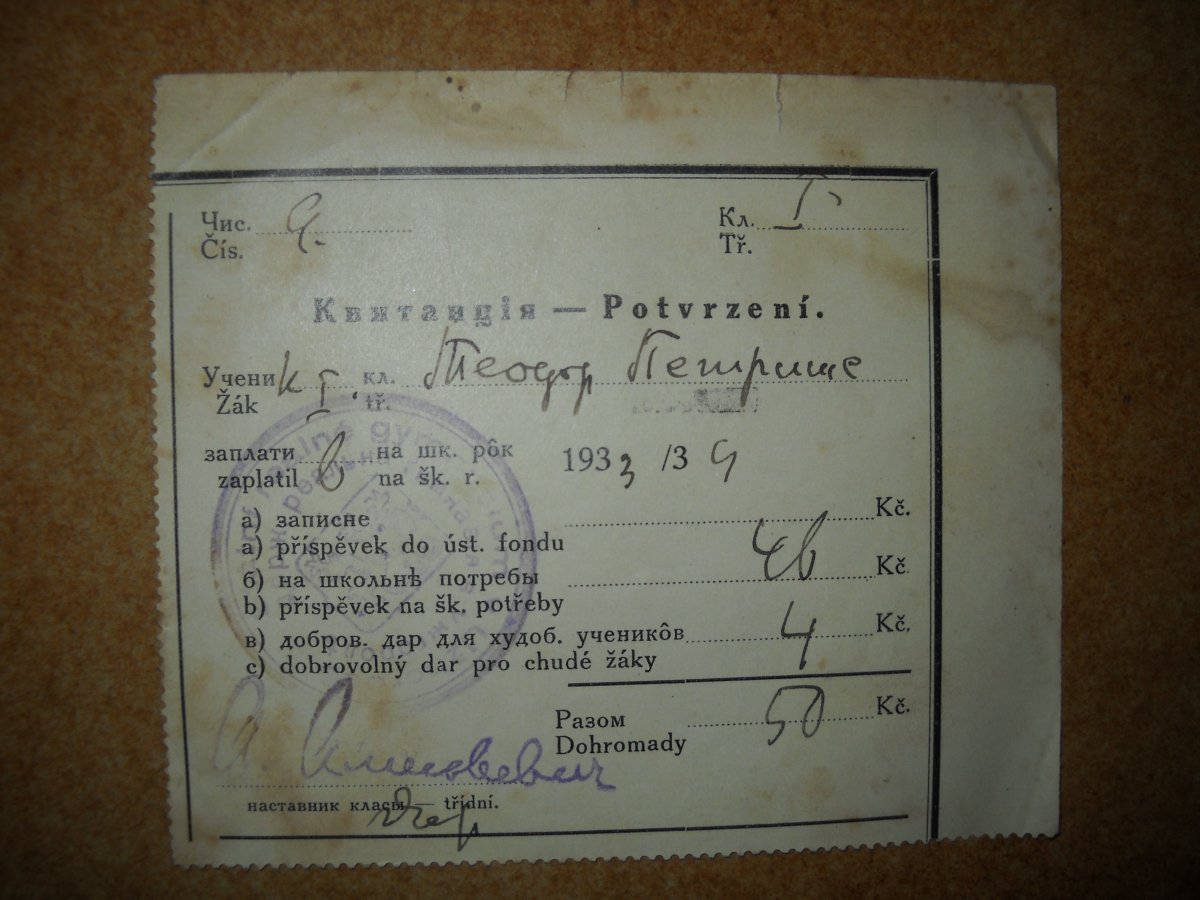 Чис. 9.
Čís.
Кл. I.
Tř.
Квитанція — Potvrzení.
Ученик I. кл. Теодор Петрище
Žák tř.
заплати в на шк. рôк 1933/34
zaplatil na šk. r.
а) записне Kč.
a) příspěvek do úst. fondu
б) на школьнѣ потребы 46 Kč
b) příspěvek na šk. potřeby
в) добров. дар для худоб. ученикôв 4 Kč.
c) dobrovolný dar pro chudé žáky
Разом 50 Kč.
Dohromady
А.
наставник класы — třídní.